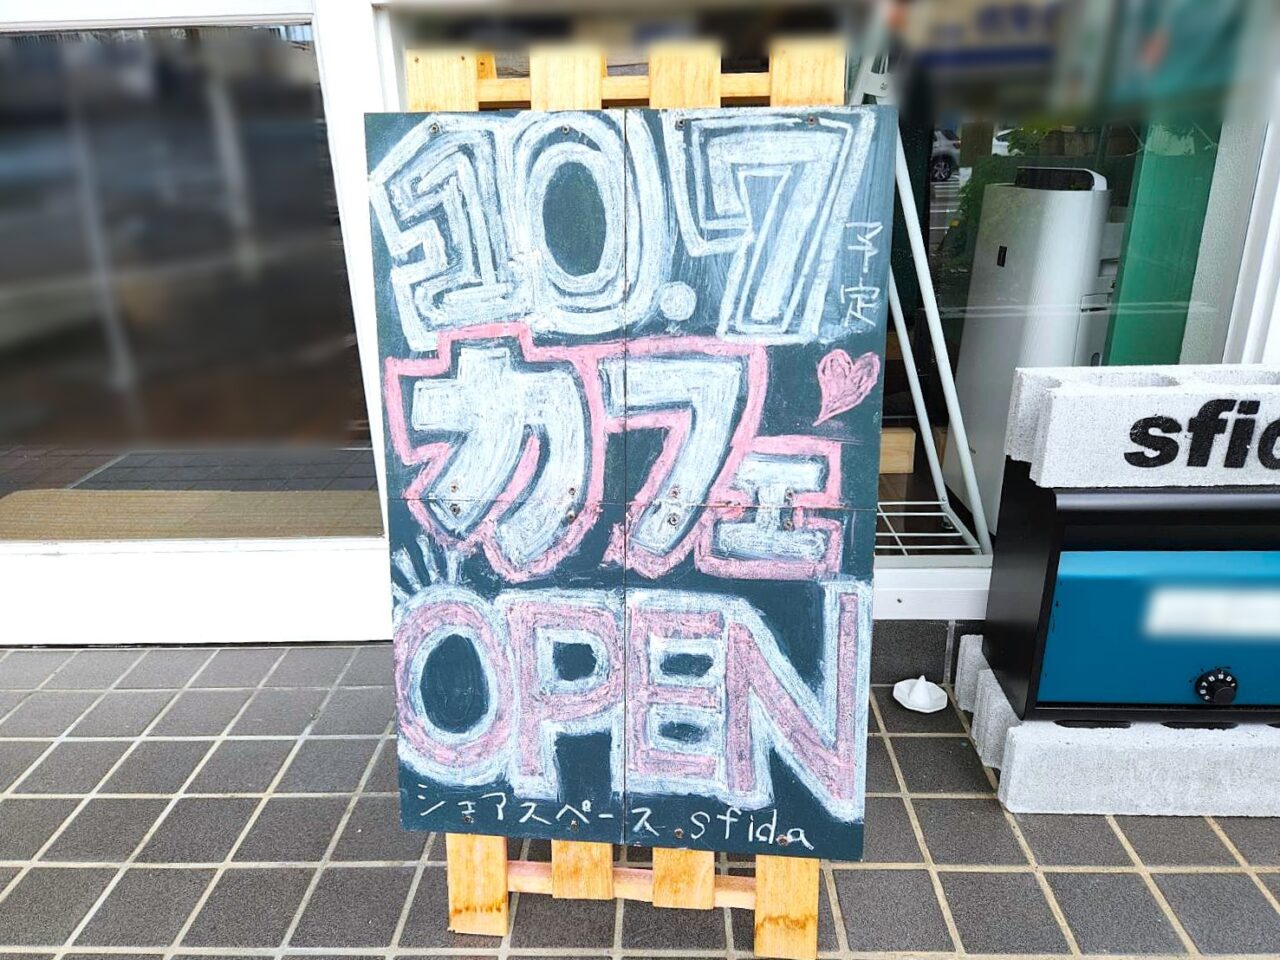 10.7
予定
カフェ
OPEN
シェアスペース sfida
sfid